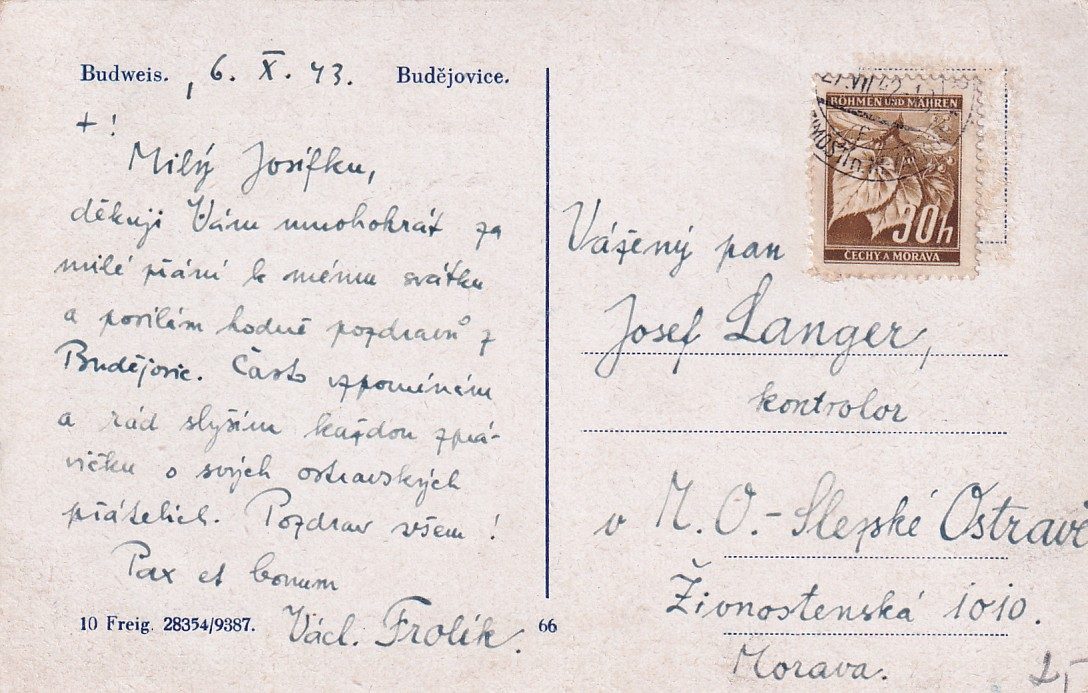 Budweis. , 6. X. 43. Budějovice.
+!
Milý Josífku,
děkuji Vám mnohokrát za
milé přání k mému svátku
a posílám hodně pozdravů z
Budějovic. Často vzpomínám
a rád slyším každou zprá-
vičku o svých ostravských
přátelích. Pozdrav všem!
Pax et bonum
Václ. Frolík.
10 Freig. 28354/9387.
66
BÖHMEN UND MÄHREN
30h
ČECHY A MORAVA
Vážený pan
Josef Langer,
kontrolor
v M. O.-Slezské Ostravě
Živnostenská 1010.
Morava.
2,-